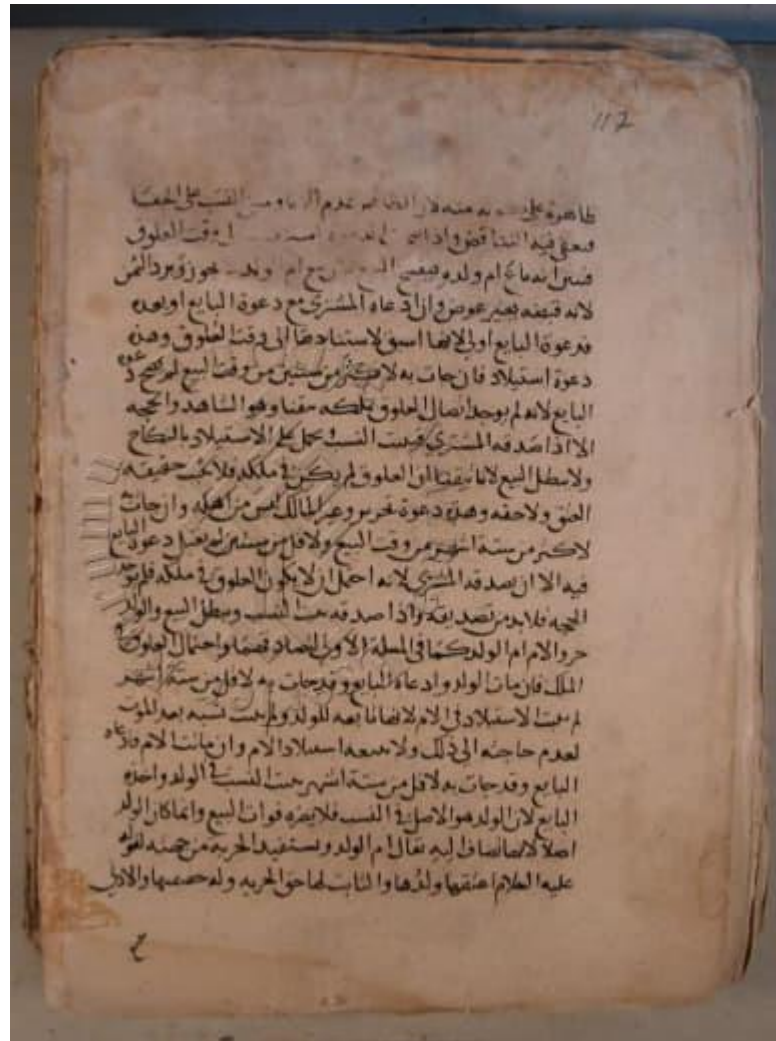 117
ظاهرة على كونه منه لان الظاهر عدم الزنا ومبنى النسب على الخفا
فيعفى فيه التناقض واذا استندت الى وقت العلوق
تبين انه باع ام ولده فيفسخ البيع لان بيع ام الولد لا يجوز ويرد الثمن
لانه قبضه بغير عوض وان ادعاه المشترى مع دعوة البايع او بعده
فدعوة البايع اولى لانها اسبق لاستنادها الى وقت العلوق وهذه
دعوة استيلاد فان جات به لاكثر من سنتين من وقت البيع لم تصح دعوة
البايع لانه لم يوجد اتصال العلوق بملكه تيقنا وهو الشاهد والحجه
الا اذا صدقه المشترى فيثبت النسب ويحمل على الاستيلاد بالنكاح
ولا يبطل البيع لانا تيقنا ان العلوق لم يكن في ملكه فلا يثبت حقيقه
العتق ولا حقه وهذه دعوة تحرير وغير المالك ليس من اهله وان جات به
لاكثر من ستة اشهر من وقت البيع ولاقل من سنتين لم تقبل دعوة البايع
فيه الا ان يصدقه المشترى لانه احتمل ان لا يكون العلوق في ملكه فلم توجد
الحجه فلا بد من تصديقه واذا صدقه يثبت النسب ويبطل البيع والولد
حر والام ام الولد كما فى المسلة الاولى لتصادقهما واحتمال العلوق في
الملك فان مات الولد وادعاه البايع وقد جات به لاقل من ستة اشهر
لم يثبت الاستيلاد في الام لانها تابعه للولد ولم يثبت نسبه بعد الموت
لعدم حاجته الى ذلك ولا يتبعه استيلاد الام وان ماتت الام فادعاه
البايع وقد جات به لاقل من ستة اشهر يثبت النسب في الولد واخذه
البايع لان الولد هو الاصل في النسب فلا يضره فوات البيع وانما كان الولد
اصلا لانها تضاف اليه يقال ام الولد وتستفيد الحريه من جهته لقوله
عليه السلام اعتقها ولدها والثابت لها حق الحريه وله حقيقتها والادنى